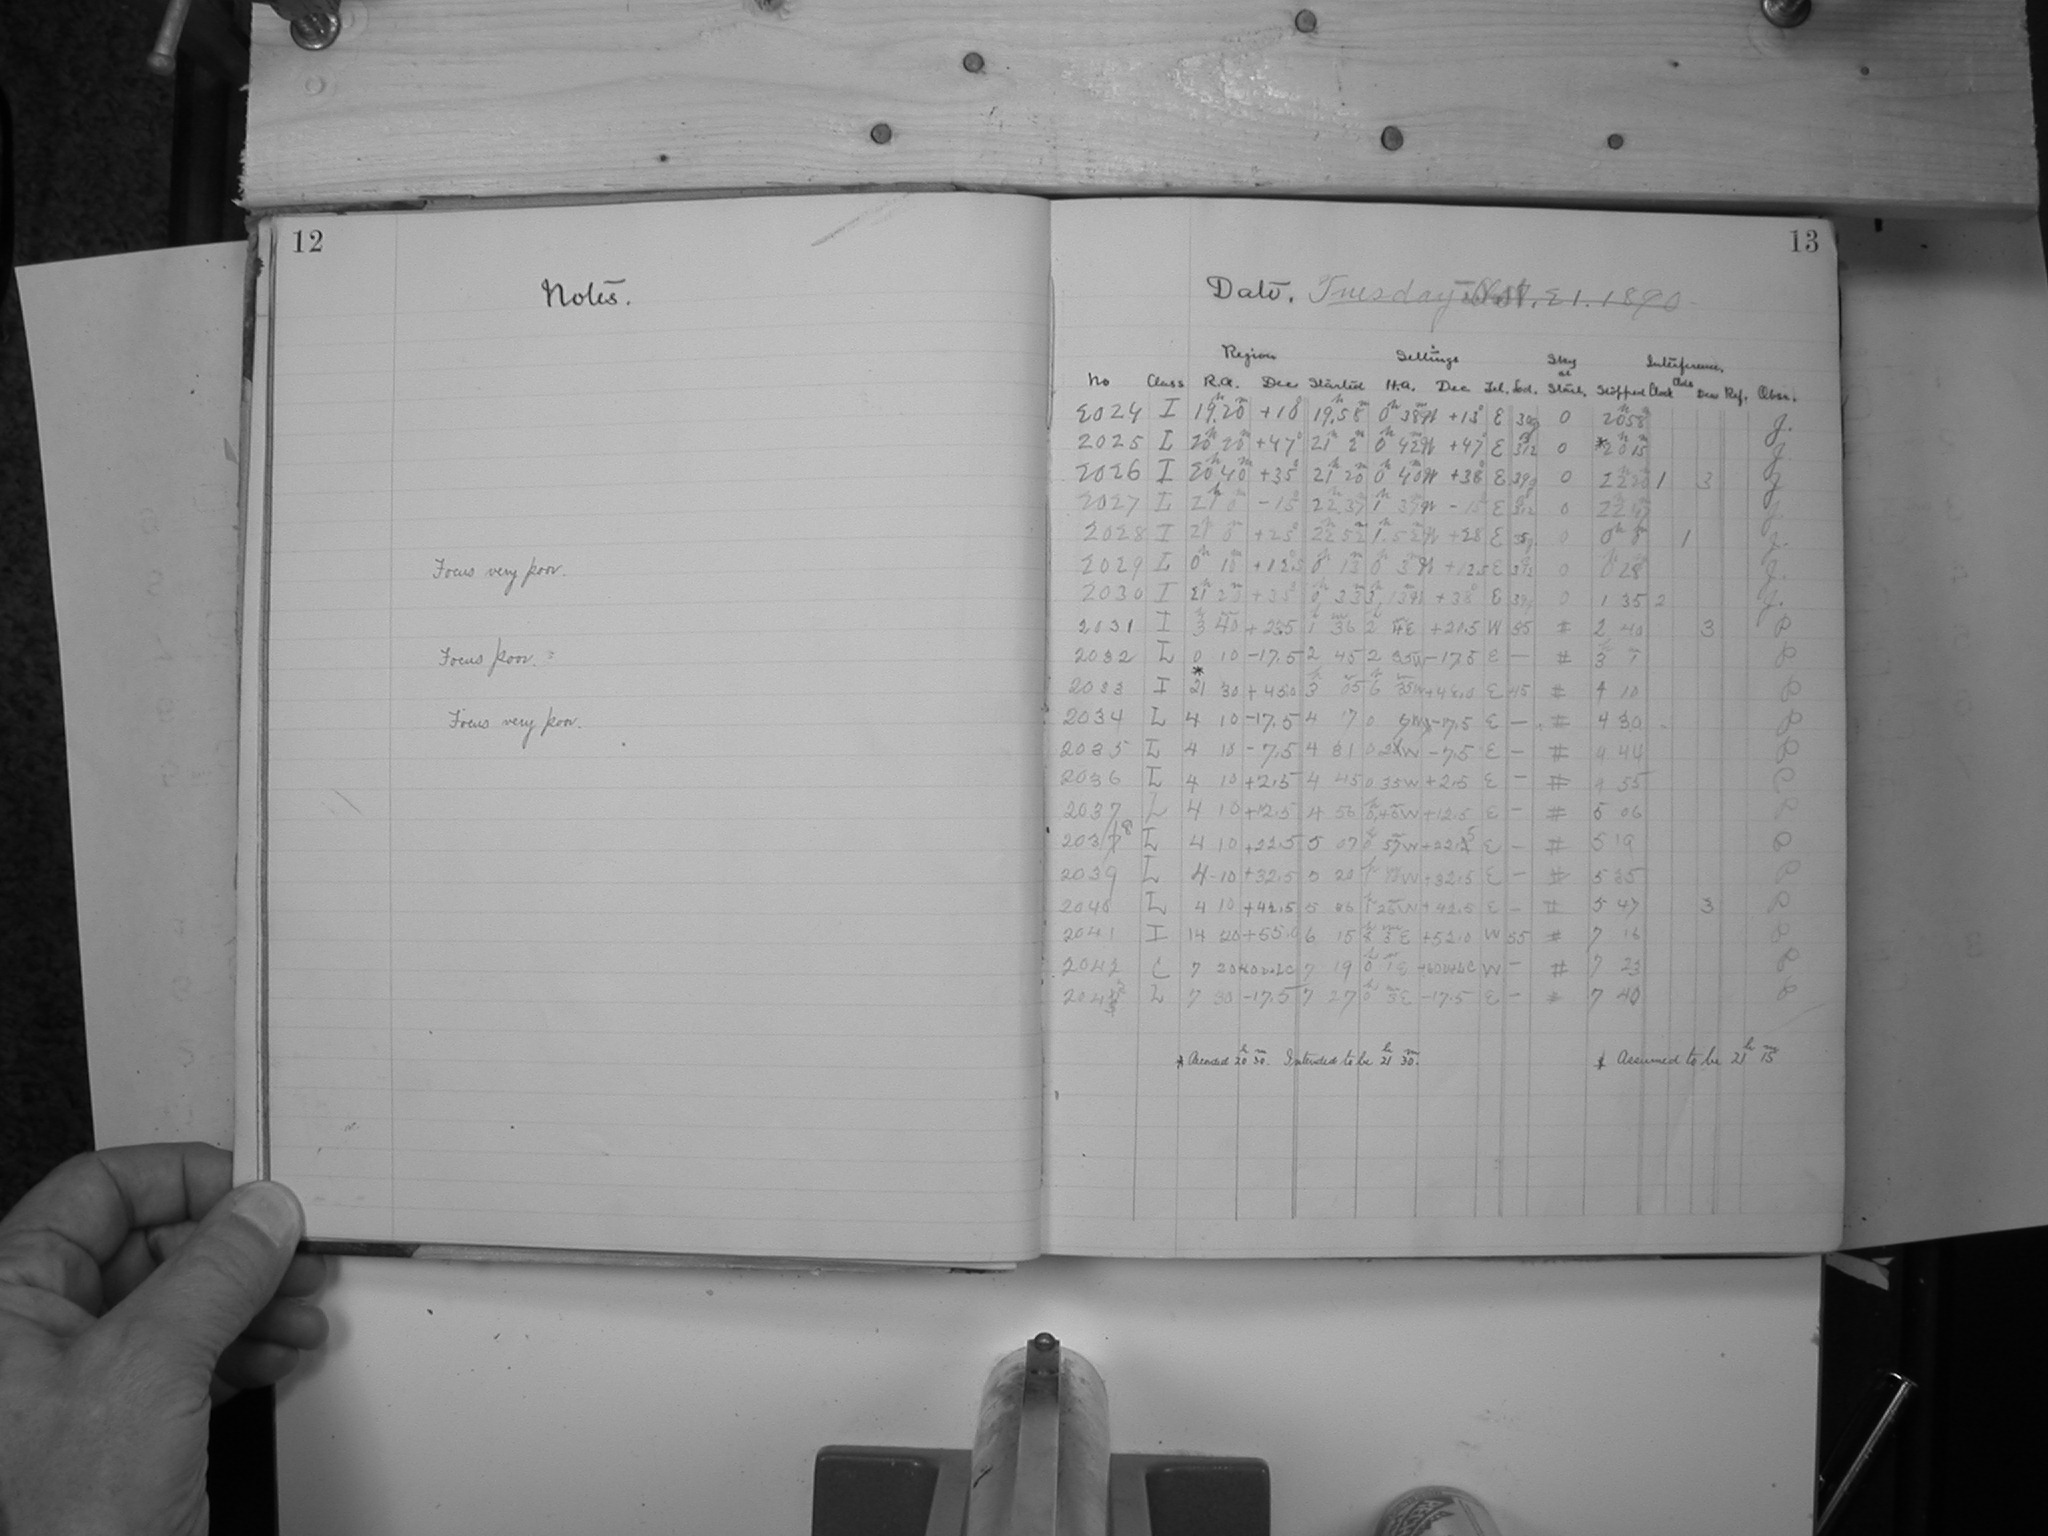 12
Notes.
Focus very poor.
Focus poor.
Focus very poor.
13
Date. Tuesday, Oct. 21. 1890
Region Settings Sky at Interference.
No Class R.A. Dec Started H.A. Dec Tel. Sod. Start. Stopped Clock Clds Dew Ref. Obsr.
2024 I 19h 20m 19h 58m 0h 38m W E 0 20h 58m J.
2025 L 20h 20m +47° 21h 2m 0h 42m W +47° E 312 0 *20h 15m J.
2026 I 20h 40m +35° 21h 20m 0h 40m W +38° E 0 22h 20m 1 3 J
2027 L 21h 0m -15° 22h 37m 1h 37m W -15 E 312 0 J.
2028 I 21h 0m +25° 22h 52m 1h 52m W +28 E 0 0h 8m 1 J.
2029 L 0h 10m +12.5 0h 13m 0h 3m W +12.5 E 0 0 28 J.
2030 I 21h 20m +35° 0h 33 3h 13m W +38° E 0 1 35 2 J.
2031 I 3h 40m +23.5 1h 36m 2h 4m E +21.5 W 55 # 2 40 3 P
2032 L 0 10 -17.5 2 45 2 35W -17.5 E — # 3 7 P
2033 I *21 30 +45.0 3h 05m 6h 35m W +48.0 E 45 # 4 10 P
2034 L 4 10 -17.5 4 17 0 -17.5 E — # 4 30 P
2035 L 4 10 -7.5 4 31 0 W -7.5 E — # 4 44 P
2036 L 4 10 +2.5 4 45 0 35W +2.5 E — # 4 55 P
2037 L 4 10 +12.5 4 56 0h 46W +12.5 E — # 5 06 P
2038 L 4 10 +22.5 5 07 0h 57m W +22.5 E — # 5 19 P
2039 L 4 10 +32.5 5 20 1h W +32.5 E — # 5 35 P
2040 L 4 10 +42.5 5 36 1h 26W +42.5 E — # 5 47 3 P
2041 I 14 20 +55.0 6 15 8h 5m E +52.0 W 55 # 7 16 P
2042 C 7 20 7 19 0h 1m E W — # 7 23 P
2043 L 7 30 -17.5 7 27 0h 3m E -17.5 E — # 7 40 P
* Recorded 20h 30m. Intended to be 21h 30m.
* Assumed to be 21h 15m